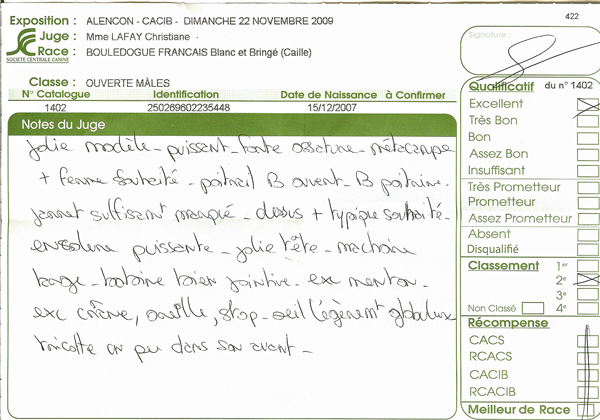 422
Exposition : ALENCON - CACIB - DIMANCHE 22 NOVEMBRE 2009
Juge : Mme LAFAY Christiane
Race : BOULEDOGUE FRANCAIS Blanc et Bringé (Caille)
SOCIETE CENTRALE CANINE
Signature :
Classe : OUVERTE MÂLES
N° Catalogue Identification Date de Naissance à Confirmer
1402 250269602235448 15/12/2007
Notes du Juge
Jolie modèle - puissant - forte ossature - métacarpe
+ ferme souhaité - poitrail B ouvert - B poitrine -
jarret suffisant marqué - dessus + typique souhaité -
encolure puissante - jolie tête - machoire
large - babine bien jointive - exc menton -
exc crâne, oreille, stop - oeil légèrement globuleux
tricotte un peu dans son avant -
Qualificatif du n° 1402
Excellent
Très Bon
Bon
Assez Bon
Insuffisant
Très Prometteur
Prometteur
Assez Prometteur
Absent
Disqualifié
Classement 1er
2e
3e
Non Classé 4e
Récompense
CACS
RCACS
CACIB
RCACIB
Meilleur de Race